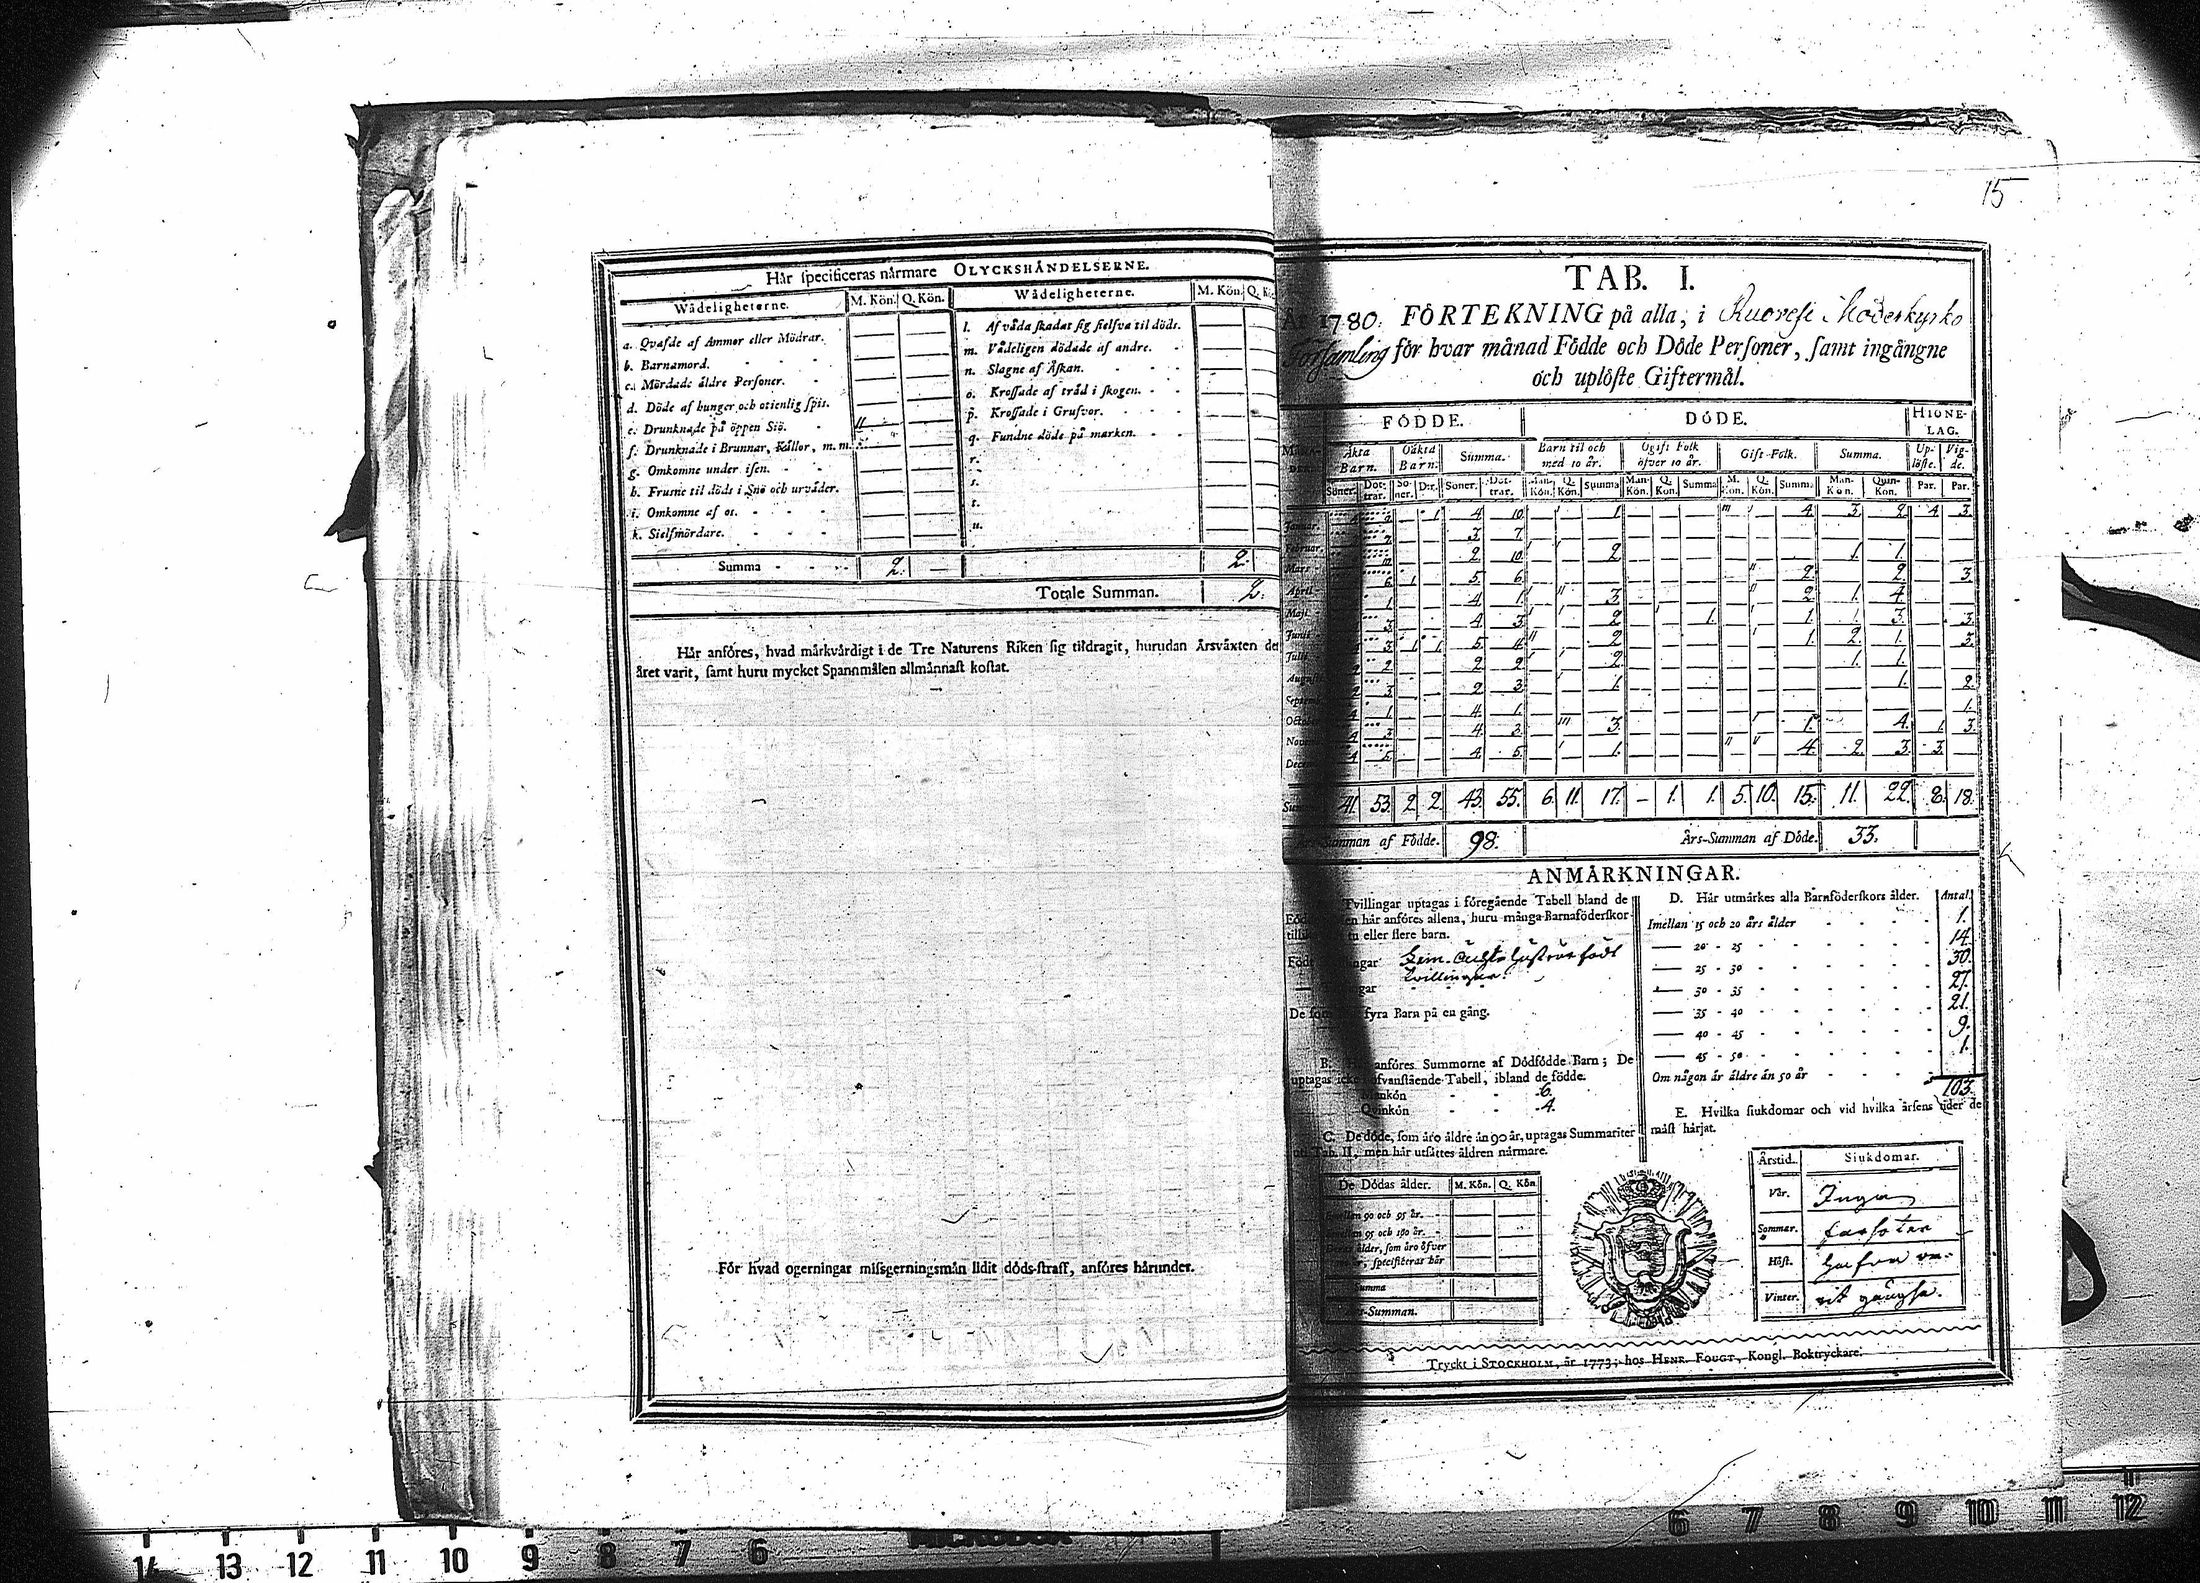 15
Här specificeras närmare OLYCKSHÄNDELSERNE.
Wådeligheterne. M. Kön. Q. Kön. Wådeligheterne. M. Kön.
a. Qvafde af Ammor eller Mödrar.
b. Barnamord.
c. Mördade äldre Personer.
d. Döde af hunger och otienlig spis.
e. Drunknade på öppen Siö. 11
f. Drunknade i Brunnar, Källor, m. m.
g. Omkomne under isen.
h. Frusne til döds i Snö och urväder.
i. Omkomne af os.
k. Sielfmördare.
l. Af våda skadat sig sielfva til döds.
m. Vådeligen dödade af andre.
n. Slagne af Åskan.
o. Krossade af träd i skogen.
p. Krossade i Grufvor.
q. Fundne döde på marken.
r.
s.
t.
u.
Summa 2. — 2.
Totale Summan. 2.
Här anföres, hvad märkvärdigt i de Tre Naturens Riken sig tildragit, hurudan Årsväxten det
året varit, samt huru mycket Spannmålen allmännast kostat.
För hvad ogerningar missgerningsmän lidit döds-straff, anföres härunder.
TAB. I.
År 1780. FÖRTEKNING på alla, i Kuovesi Moderkyrko
Församling för hvar månad Födde och Döde Personer, samt ingångne
och uplöste Giftermål.
FÖDDE. DÖDE. HIONELAG.
Äkta Barn. Oäkta Barn. Summa. Barn til och med 10 år. Ogift Folk öfver 10 år. Gift-Folk. Summa. Uplöste. Vigde.
Söner. Döttrar. Söner. Dr. Söner. Döttrar. Mankön. Q. Kön. Summa Mankön. Q. Kön. Summa M. Kön. Q. Kön. Summa Mankön. Quinkön. Par. Par.
Januar. 1 4 10 1 4 3 2 4 3
Februar. 3 7
Mars 2 10 2 1 1
April 6 1 5 6 2 2 3
Maji 1 4 1 3 2 1 4
Junii 3 4 3 2 1 1 1 3 3
Julii 3 1 1 5 4 2 1 2 1 3
August. 2 2 2 2 1 1
Septemb. 3 2 3 1 1 2
October 4 1 4 1 1
Novemb. 4 3 4 3 3 1 4 1 3
Decemb. 4 5 4 5 1 4 2 3 3
Summa 41. 53. 2 2 43. 55. 6. 11. 17. – 1. 1. 5. 10. 15. 11. 22. 8. 18.
Års-Summan af Födde. 98. Års-Summan af Döde. 33.
ANMÄRKNINGAR.
Tvillingar uptagas i föregående Tabell bland de
här anföres allena, huru många Barnaföderskor
eller flere barn.
tvillingar.
De fyra Barn på en gång.
B. anföres Summorne af Dödfödde Barn; De
uptagas icke ofvanstående Tabell, ibland de födde.
Mankön 6.
Qvinkön 4.
C. De döde, som äro äldre än 90 år, uptagas Summariter
uti Tab. II, men här utsättes åldren närmare.
De Dödas ålder. M. Kön. Q. Kön
Imellen 90 och 95 år.
Imellen 95 och 100 år.
ålder, som äro öfver
år, specificeras här
Summa
Års-Summan.
D. Här utmärkes alla Barnföderskors ålder. Antal.
Imellan 15 och 20 års ålder 1.
— 20 - 25 14.
— 25 - 30 30.
— 30 - 35 27.
— 35 - 40 21.
— 40 - 45 9.
— 45 - 50 1.
Om någon är äldre än 50 år
103.
E. Hvilka siukdomar och vid hvilka årsens tider de
mäst härjat.
Årstid. Siukdomar.
Vår. Inga
Sommar. farsoter
Höst. hafva va-
Vinter. rit gängse.
Tryckt i STOCKHOLM, år 1773, hos HENR. FOUGT, Kongl. Boktryckare.
14 13 12 11 10 9 8 7 6
6 7 8 9 10 11 12